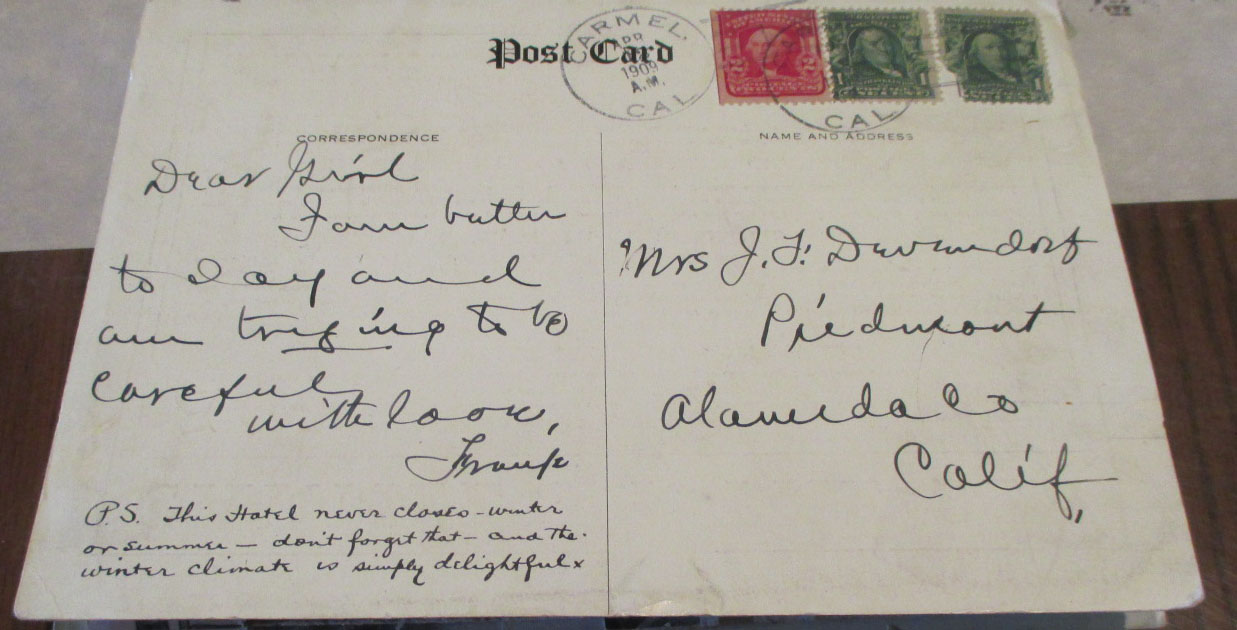 Post Card
CARMEL.
APR
1909
A.M.
CAL
UNITED STATES OF AMERICA
2 2
1 1
1
CAL
CORRESPONDENCE
NAME AND ADDRESS
Dear Girl
I am better
to day and
am trying to be
careful
with love,
Frank
P.S. This Hotel never closes - winter
or summer - don't forget that - and the
winter climate is simply delightful x
Mrs J. F. Devendorf
Piedmont
Alameda Co
Calif,